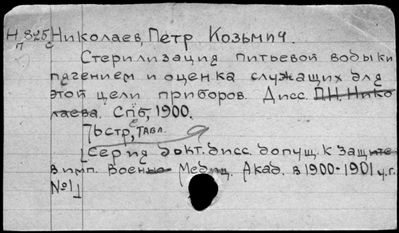 Н 825 Николаев, Петр Козьмич.
П с
Стерилизация питьевой воды ки
пячением и оценка служащих для
этой цели приборов. Дисс. П.Н. Нико
лаева. Спб, 1900.
76 стр, табл.
[Серия докт. дисс. допущ. к защите
в имп. Военно Медиц. Акад. в 1900-1901 уч. г.
№1]